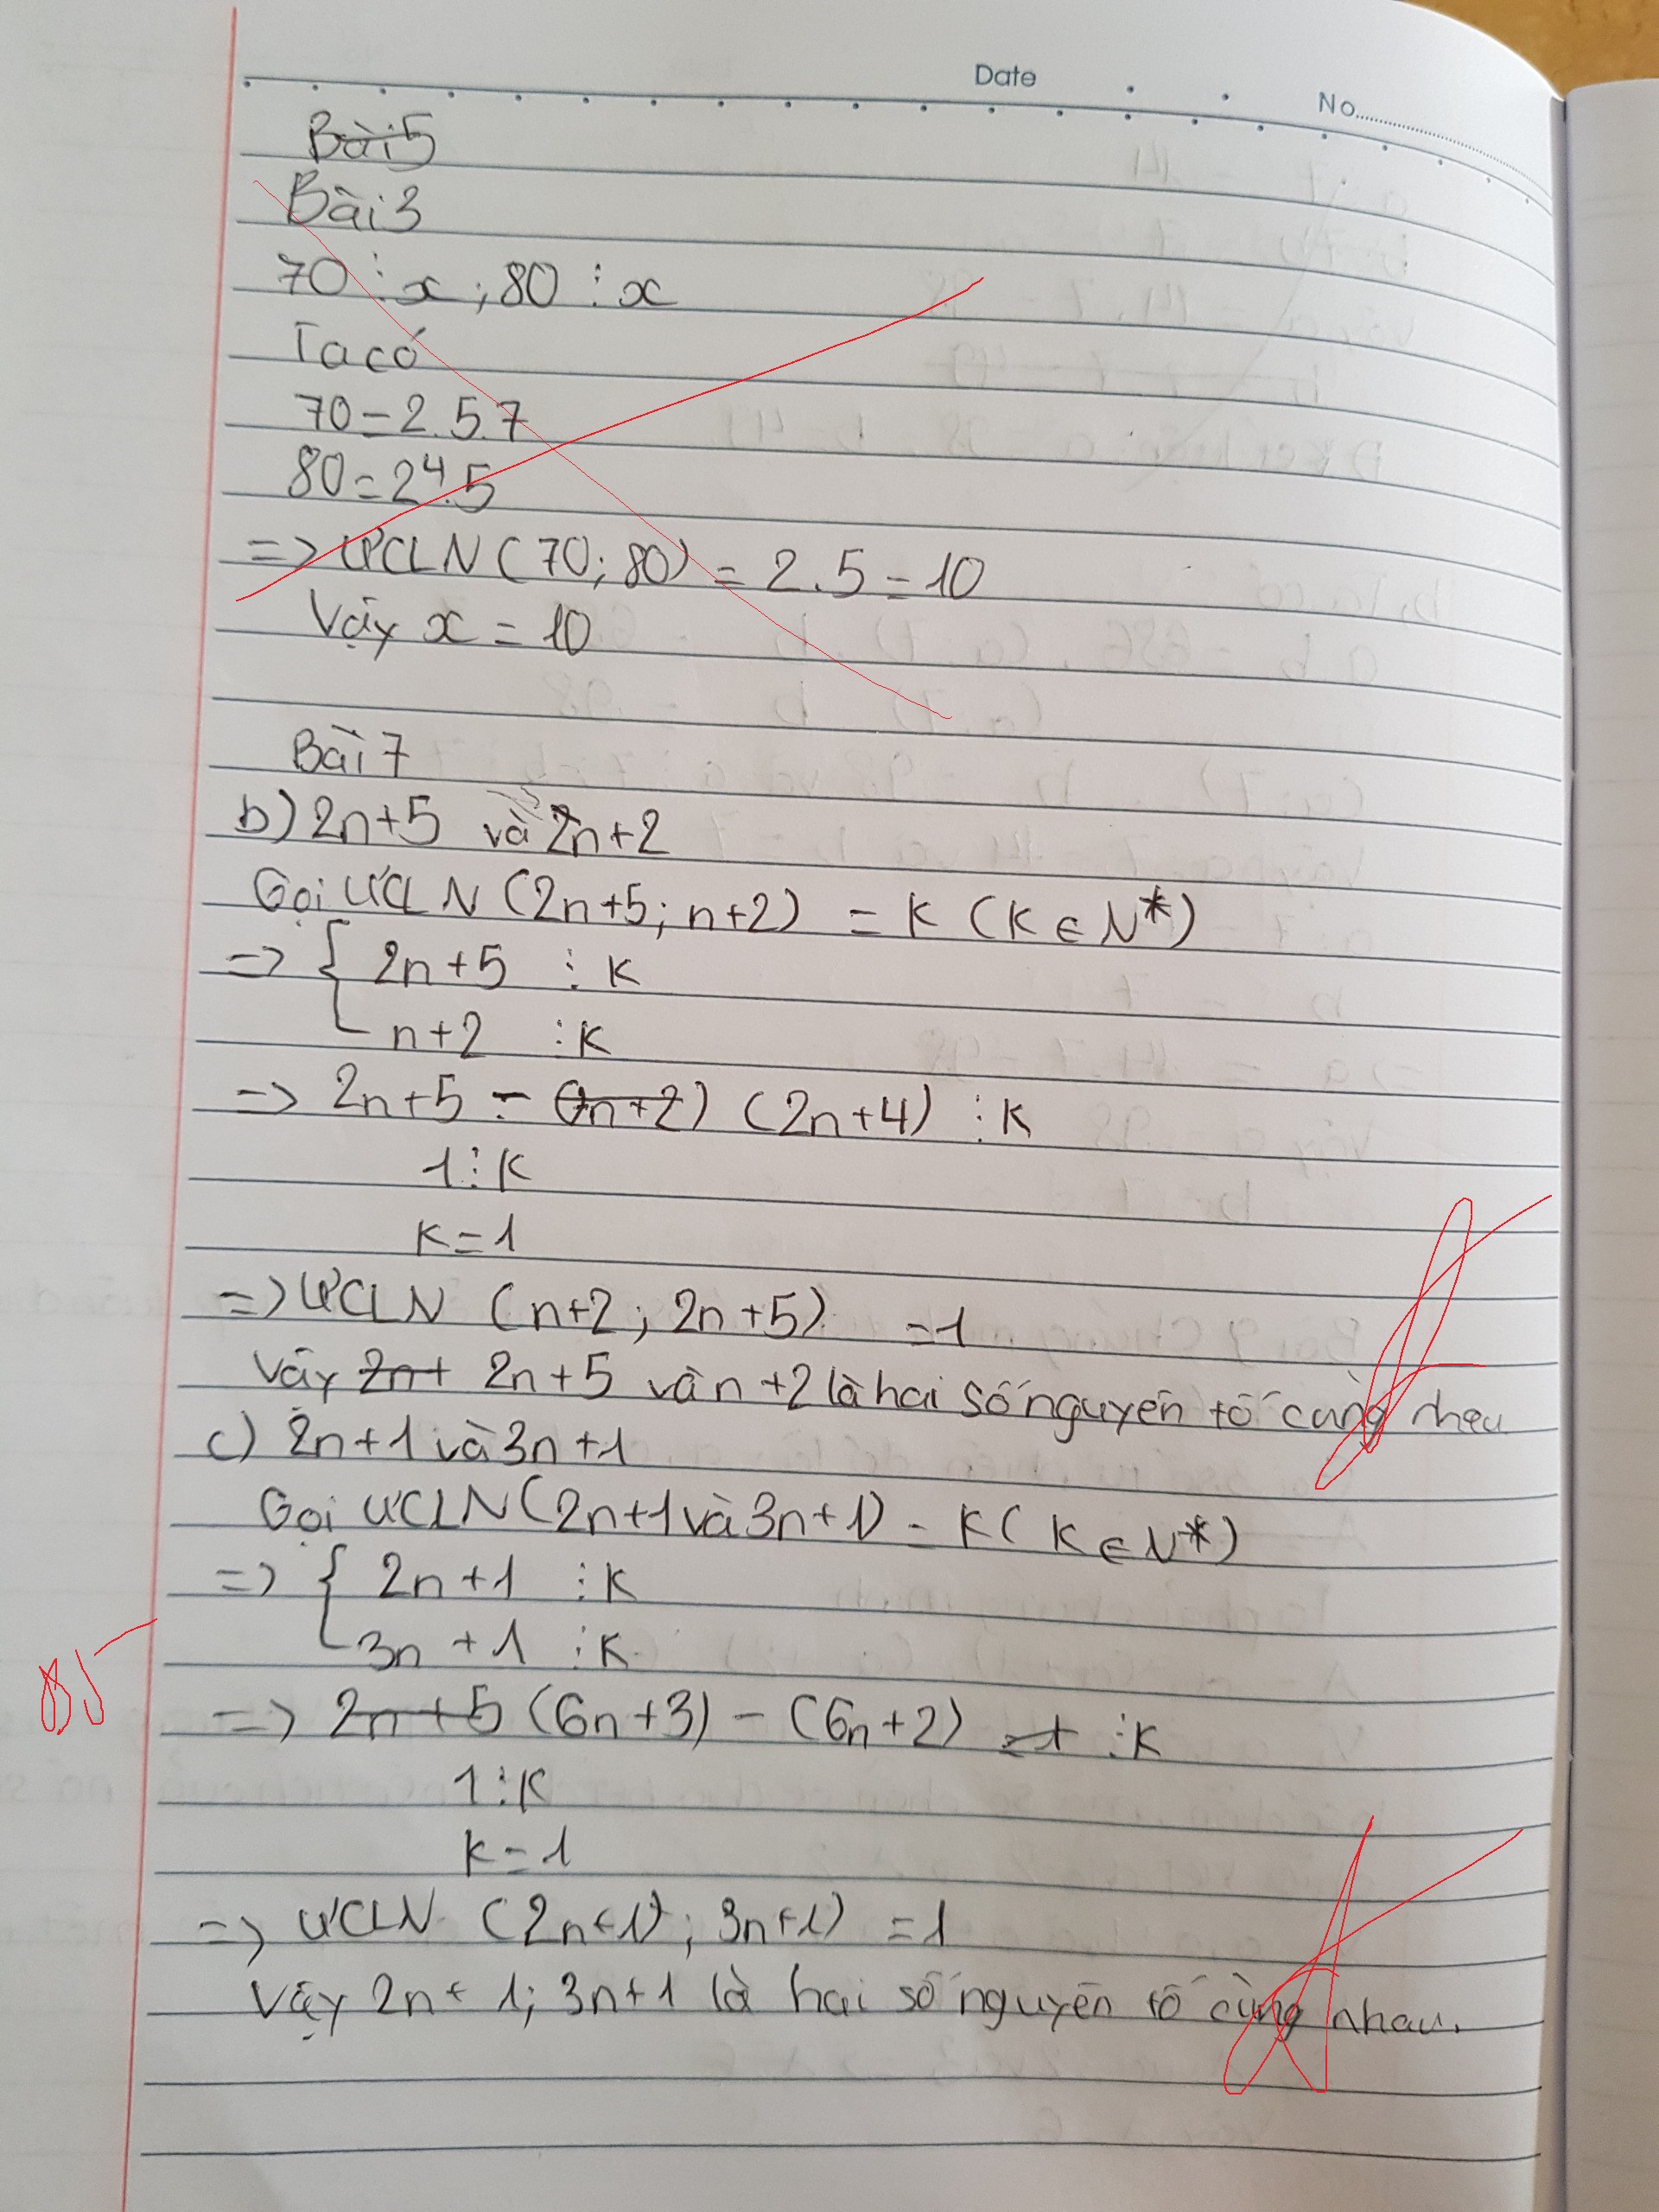 Date
No
Bài 5
Bài 3
70 ⋮ x ; 80 ⋮ x
Ta có
70 = 2.5.7
80 = 2⁴.5
=> ƯCLN (70; 80) = 2.5 = 10
Vậy x = 10
Bài 7
b) 2n+5 và n+2
Gọi ƯCLN (2n+5; n+2) = K (K ∈ N*)
=> { 2n+5 ⋮ K
n+2 ⋮ K
=> 2n+5 - (n+2) (2n+4) ⋮ K
1 ⋮ K
K = 1
=> ƯCLN (n+2; 2n+5) = 1
Vậy 2n+ 2n+5 và n+2 là hai số nguyên tố cùng nhau
c) 2n+1 và 3n+1
Gọi ƯCLN (2n+1 và 3n+1) = K (K ∈ N*)
=> { 2n+1 ⋮ K
3n+1 ⋮ K
85
=> 2n+5 (6n+3) - (6n+2) =1 ⋮ K
1 ⋮ K
K = 1
=> ƯCLN (2n+1); 3n+1) = 1
Vậy 2n+1; 3n+1 là hai số nguyên tố cùng nhau.